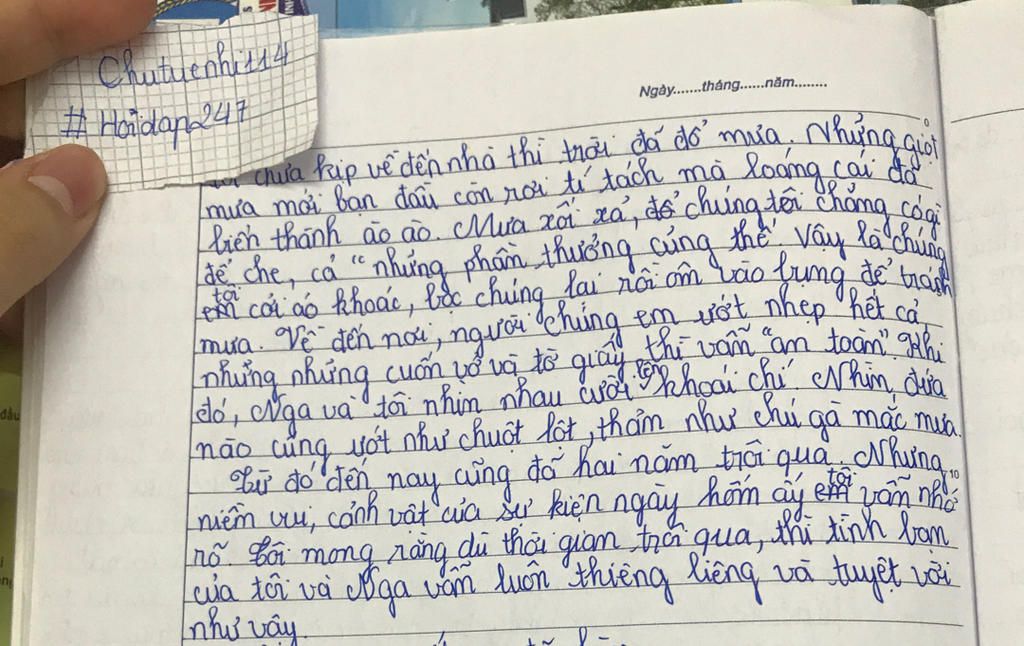 Chutuenhi114
# Hoidap247
Ngày.......tháng......năm........
chưa kịp về đến nhà thì trời đã đổ mưa. Những giọt
mưa mới bạn đầu còn rơi tí tách mà loáng cái đã
liền thành ào ào. Mưa xối xả, để chúng tôi chẳng có gì
để che, cả "những phần thưởng cũng thế. Vậy là chúng
tôi
em cởi áo khoác, bọc chúng lại rồi ôm vào bụng để tránh
mưa. Về đến nơi, người chúng em ướt nhẹp hết cả
nhưng những cuốn vở và tờ giấy thì vẫn "an toàn". Khi
đó, Nga và tôi nhìn nhau cười lên khoái chí. Nhìn, đứa
nào cũng ướt như chuột lột, thảm như chú gà mắc mưa.
Từ đó đến nay cũng đã hai năm trôi qua. Nhưng
10
niềm vui, cảnh vật của sự kiện ngày hôm ấy em tôi vẫn nhớ
rõ. Tôi mong rằng dù thời gian trôi qua, thì tình bạn
của tôi và Nga vẫn luôn thiêng liêng và tuyệt vời
như vậy.